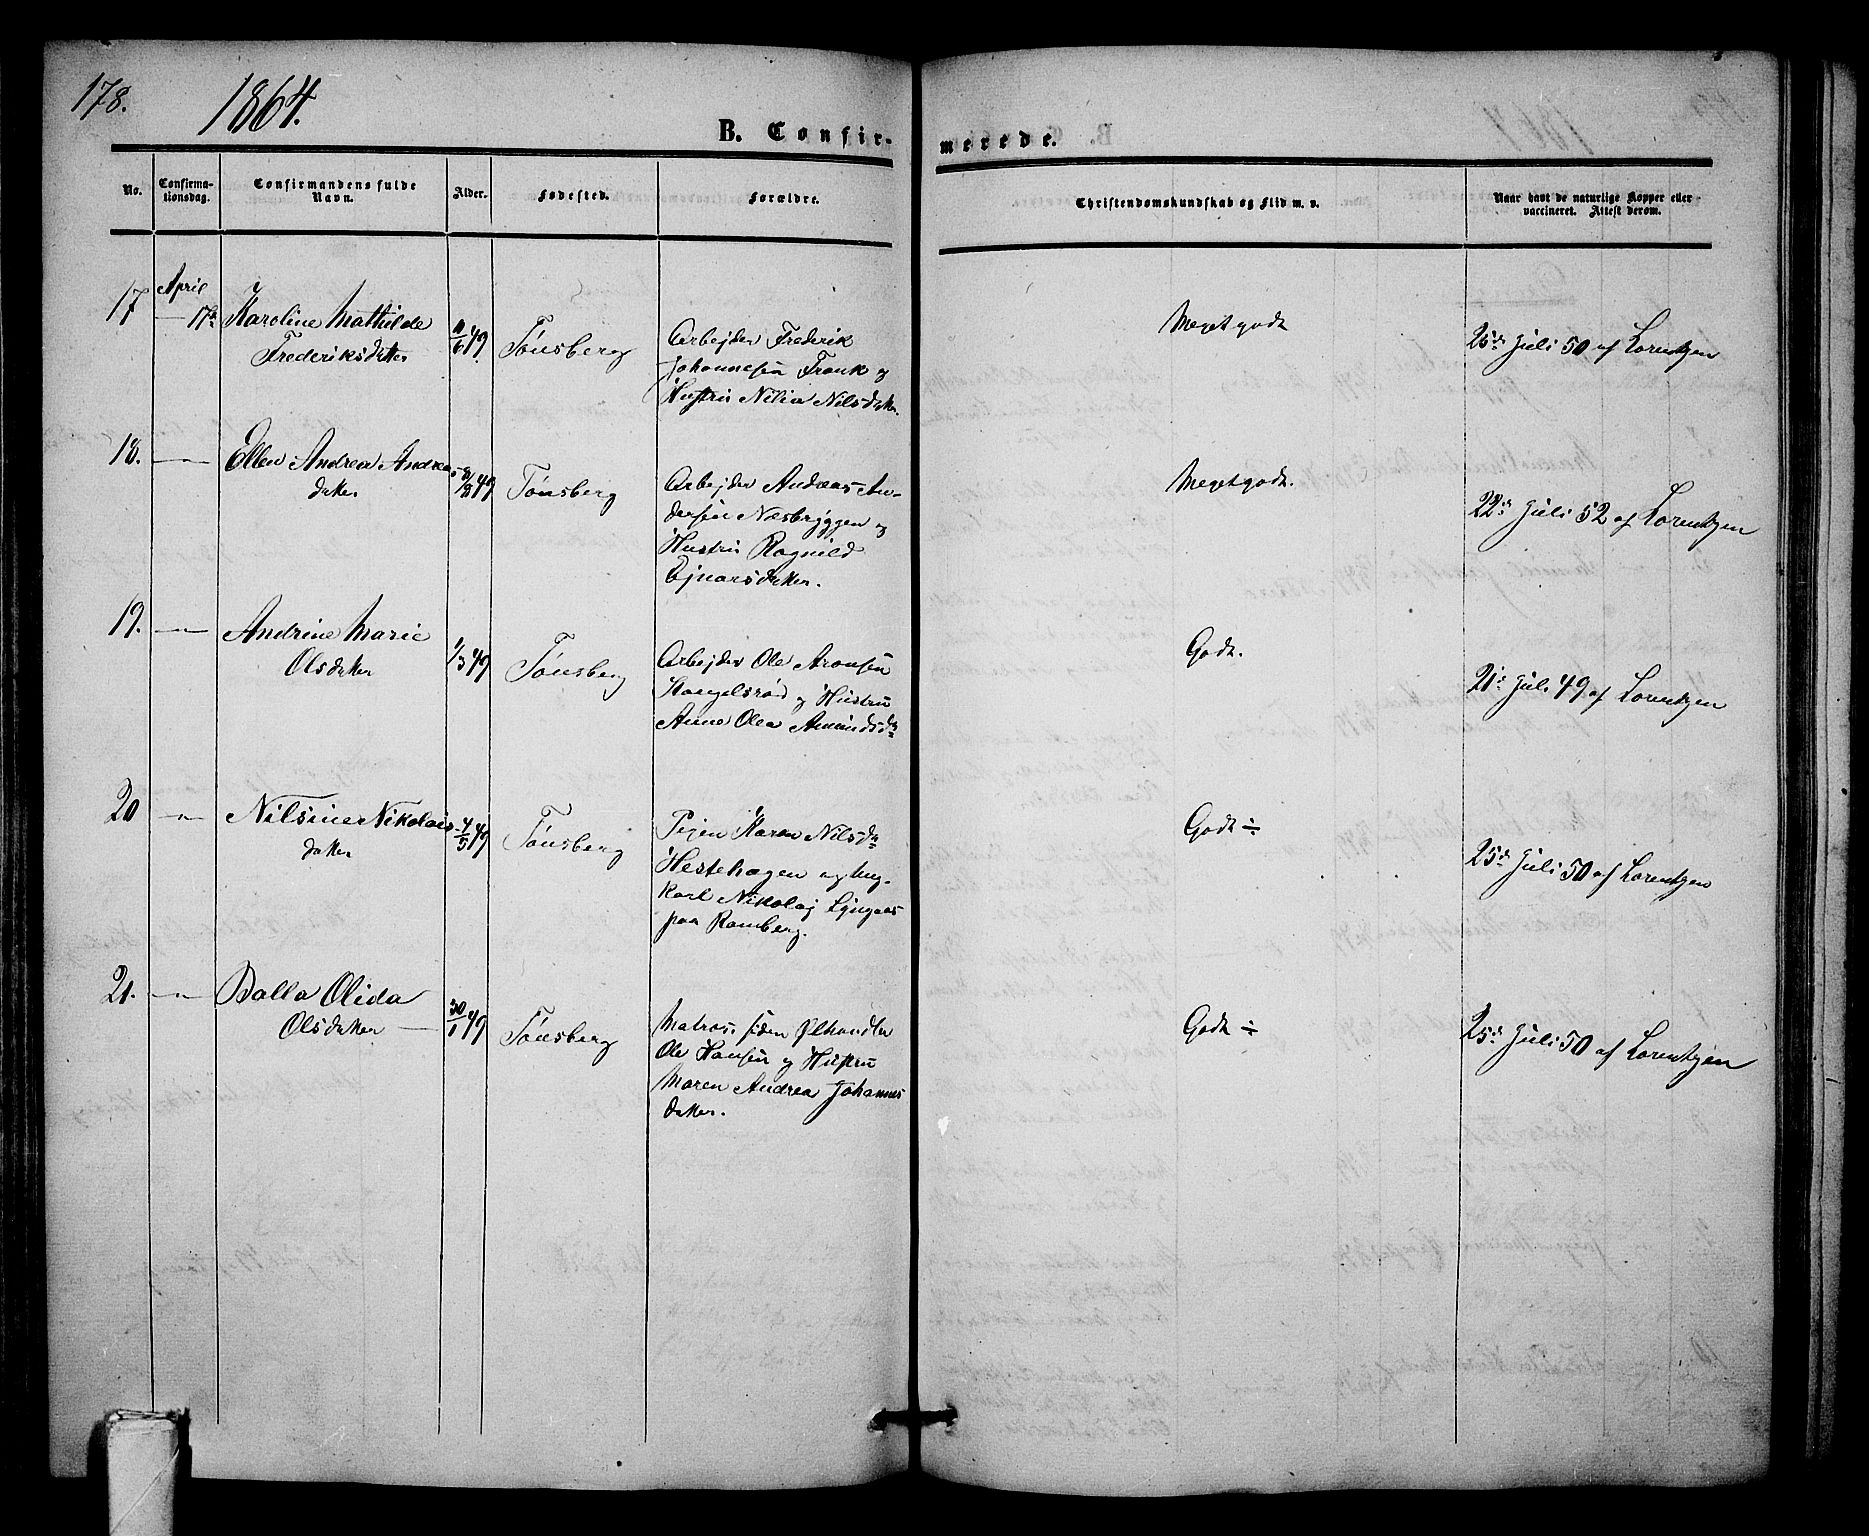 178.
1864.
B. Confir-
merede.
No.
Confirma-
tionsdag.
Confirmandens fulde
Navn.
Alder.
Fødested.
Forældre.
Christendomskundskab og Flid m. v.
Naar havt de naturlige Kopper eller
vaccineret. Attest derom.
17
April
— 17de
Karoline Mathilde
Frederiksdatter
11/6 49
Tönsberg
Arbejder Frederik
Johannesen Frank og
Hustru Nilia Nilsdatter
Meget godt
25de Juli 50 af Lorentzen
18.
—
Ellen Andrea Andreas-
datter
49
Tönsberg
Arbejder Andreas An-
dersen Næsbryggen og
Hustru Ragnild
Ejnarsdatter.
Meget godt.
22de Juli 52 af Lorentzen
19.
—"—
Andrine Marie
Olsdatter
1/3 49
Tönsberg
Arbejder Ole Aronsen
Stangelsröd og Hustru
Anne Olea Amundsdr
Godt.
21de Juli 49 af Lorentzen
20
—"—
Nilsine Nikolais-
datter
4/5 49
Tönsberg
Pigen Karen Nilsdr
Hestehagen og Ung-
karl Nikolaj Lyngaas
paa Ramberg.
Godt ÷
25de Juli 50 af Lorentzen
21.
—"—
Balla Olida
Olsdatter —
30/1 49
Tönsberg
Matros, siden Ølhandler
Ole Hansen og Hustru
Maren Andrea Johannes
datter.
Godt ÷
25de Juli 50 af Lorentzen